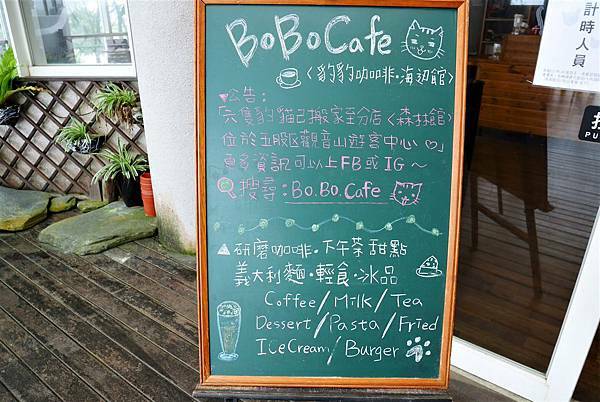 BoBoCafe
〈豹豹咖啡·海边館〉
♥公告:
「六隻豹貓已搬家至分店〈森林館〉
位於五股区觀音山遊客中心♡」
更多資訊可以上FB或IG~
搜尋:Bo.Bo.Cafe
▲研磨咖啡·下午茶甜點
義大利麵·輕食·冰品
Coffee/Milk/Tea
Dessert/Pasta/Fried
IceCream/Burger
計時人員
PU